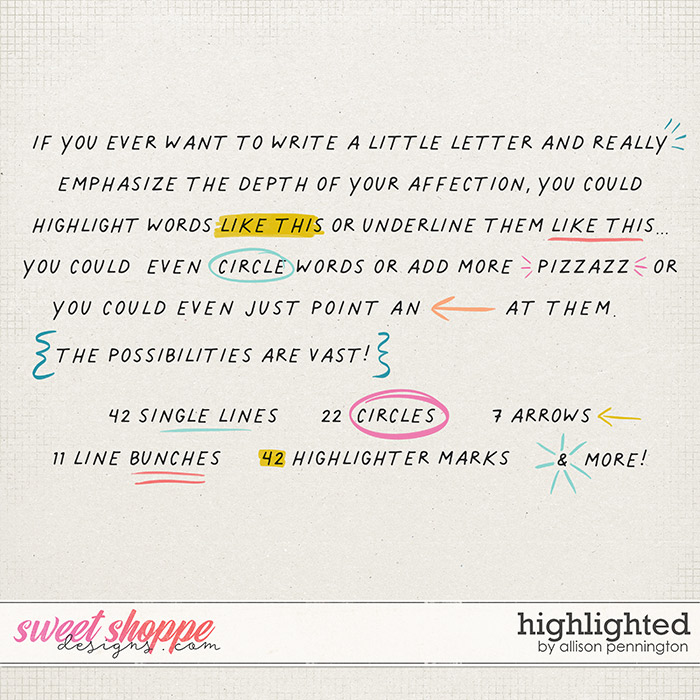 IF YOU EVER WANT TO WRITE A LITTLE LETTER AND REALLY
EMPHASIZE THE DEPTH OF YOUR AFFECTION, YOU COULD
HIGHLIGHT WORDS LIKE THIS OR UNDERLINE THEM LIKE THIS...
YOU COULD EVEN CIRCLE WORDS OR ADD MORE PIZZAZZ OR
YOU COULD EVEN JUST POINT AN ← AT THEM.
{THE POSSIBILITIES ARE VAST!}
42 SINGLE LINES 22 CIRCLES 7 ARROWS ←
11 LINE BUNCHES 42 HIGHLIGHTER MARKS & MORE!
sweet shoppe
designs.com
highlighted
by allison pennington